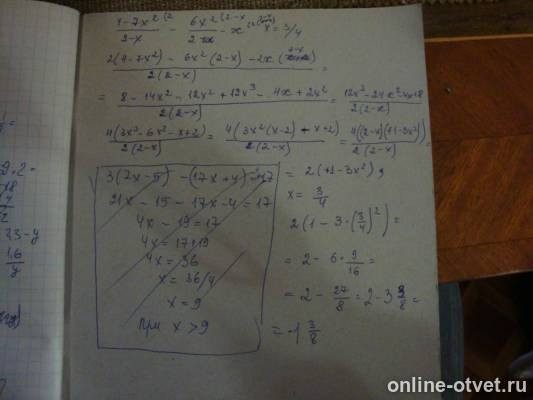 (4-7x²)/(2-x) - 6x²/2 - x x = 3/4
(2(4-7x²) - 6x²(2-x) - 2x(2-x))/(2(2-x)) =
= (8 - 14x² - 12x² + 12x³ - 4x + 2x²)/(2(2-x)) = (12x³ - 24x² - 4x + 8)/(2(2-x))
4(3x³-6x²-x+2)/(2(2-x)) = 4(3x²(x-2) - x+2)/(2(2-x)) = 4((2-x)(+1-3x²))/(2(2-x)) =
= 2(+1-3x²),
x = 3/4
2(1 - 3·(3/4)²) =
= 2 - 6·9/16 =
= 2 - 27/8 = 2 - 3 3/8 =
= -1 3/8
3(7x-5) - (17x+4) = 17
21x - 15 - 17x - 4 = 17
4x - 19 = 17
4x = 17+19
4x = 36
x = 36/4
x = 9
При x > 9
online-otvet.ru